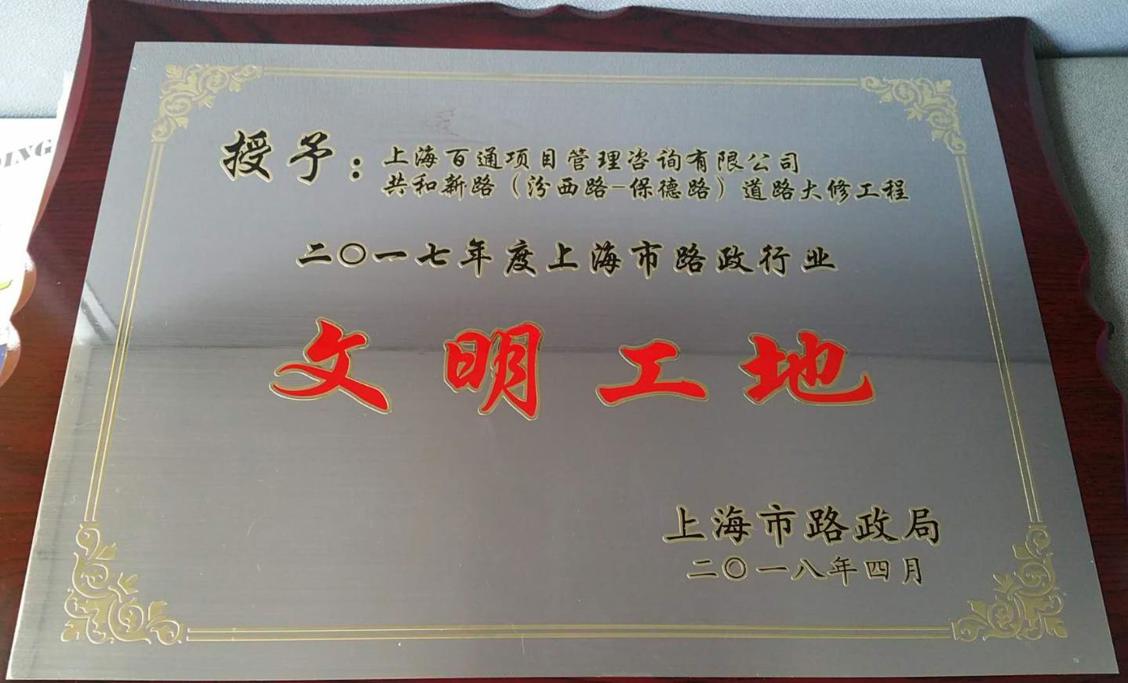 DING
授予：上海百通项目管理咨询有限公司
共和新路（汾西路-保德路）道路大修工程
二〇一七年度上海市路政行业
文明工地
上海市路政局
二〇一八年四月